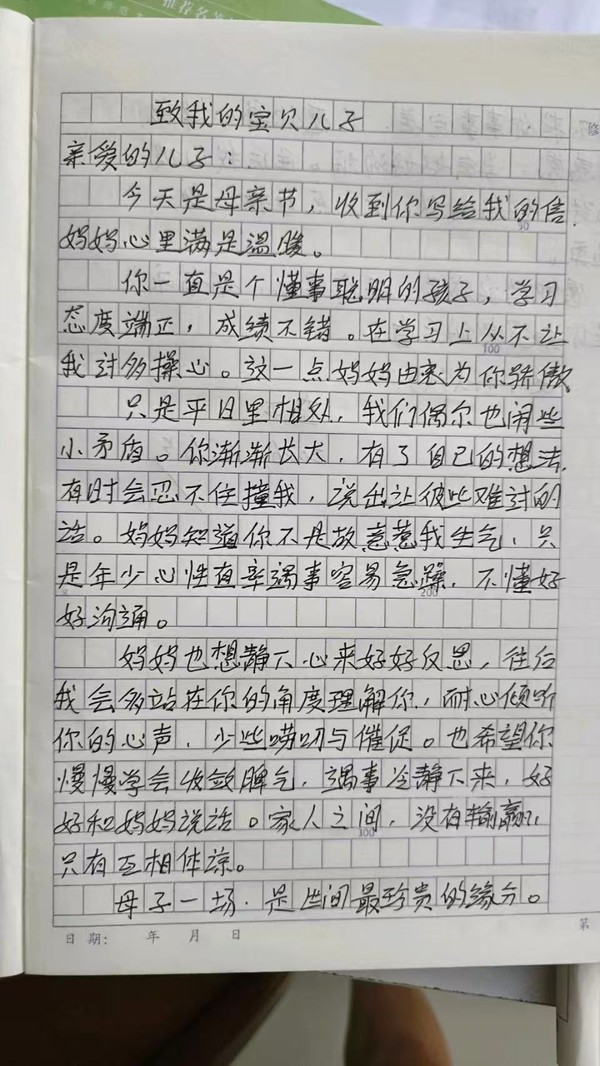 致我的宝贝儿子
亲爱的儿子：
今天是母亲节，收到你写给我的信.
妈妈心里满是温暖。
你一直是个懂事聪明的孩子，学习
态度端正，成绩不错。在学习上从不让
我过多操心。这一点妈妈由衷为你骄傲
只是平日里相处，我们偶尔也闹些
小矛盾。你渐渐长大，有了自己的想法，
有时会忍不住撞我，说出让彼此难过的
话。妈妈知道你不是故意惹我生气，只
是年少心性直率遇事容易急躁，不懂好
200
好沟通。
妈妈也想静下心来好好反思，往后
我会多站在你的角度理解你，耐心倾听
你的心声，少些唠叨与催促。也希望你
慢慢学会收敛脾气，遇事冷静下来，好
好和妈妈说话。家人之间，没有输赢，
300
只有互相体谅。
母子一场，是世间最珍贵的缘分。
日期： 年 月 日
第